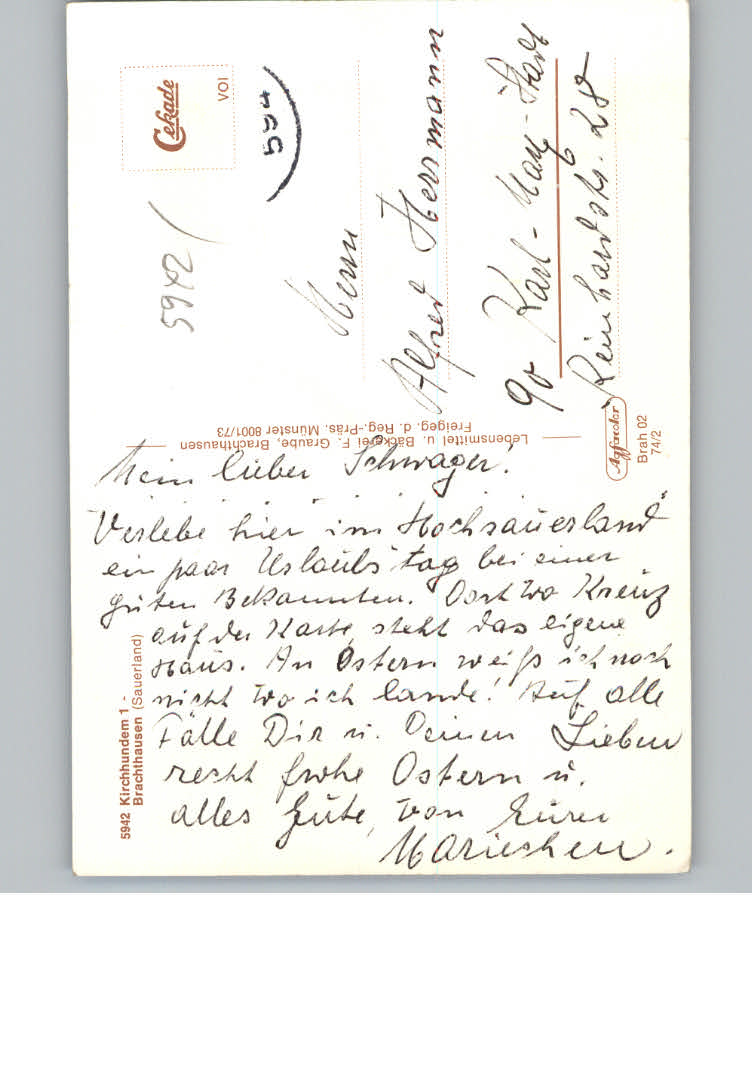 Mein lieber Schwager!
Verlebe hier im Hochsauerland
ein paar Urlaubstag bei einer
guten Bekannten. Dort wo Kreuz
auf der Karte, steht das eigene
Haus. An Ostern weiß ich noch
nicht wo ich lande! Auf alle
Fälle Dir u. Deinen Lieben
recht frohe Ostern u.
alles Gute, von Eurer
Mariechen.
5942 Kirchhundem 1 -
Brachthausen (Sauerland)
Lebensmittel u. Bäckerei F. Graube, Brachthausen
Freigeg. d. Reg.-Präs. Münster 8001/73
Cekade
VOI
594
5942
Herrn
Alfred Herrmann
90 Karl-Marx-Stadt
Reinhardstr. 28
Agfacolor
Brah 02
74/2